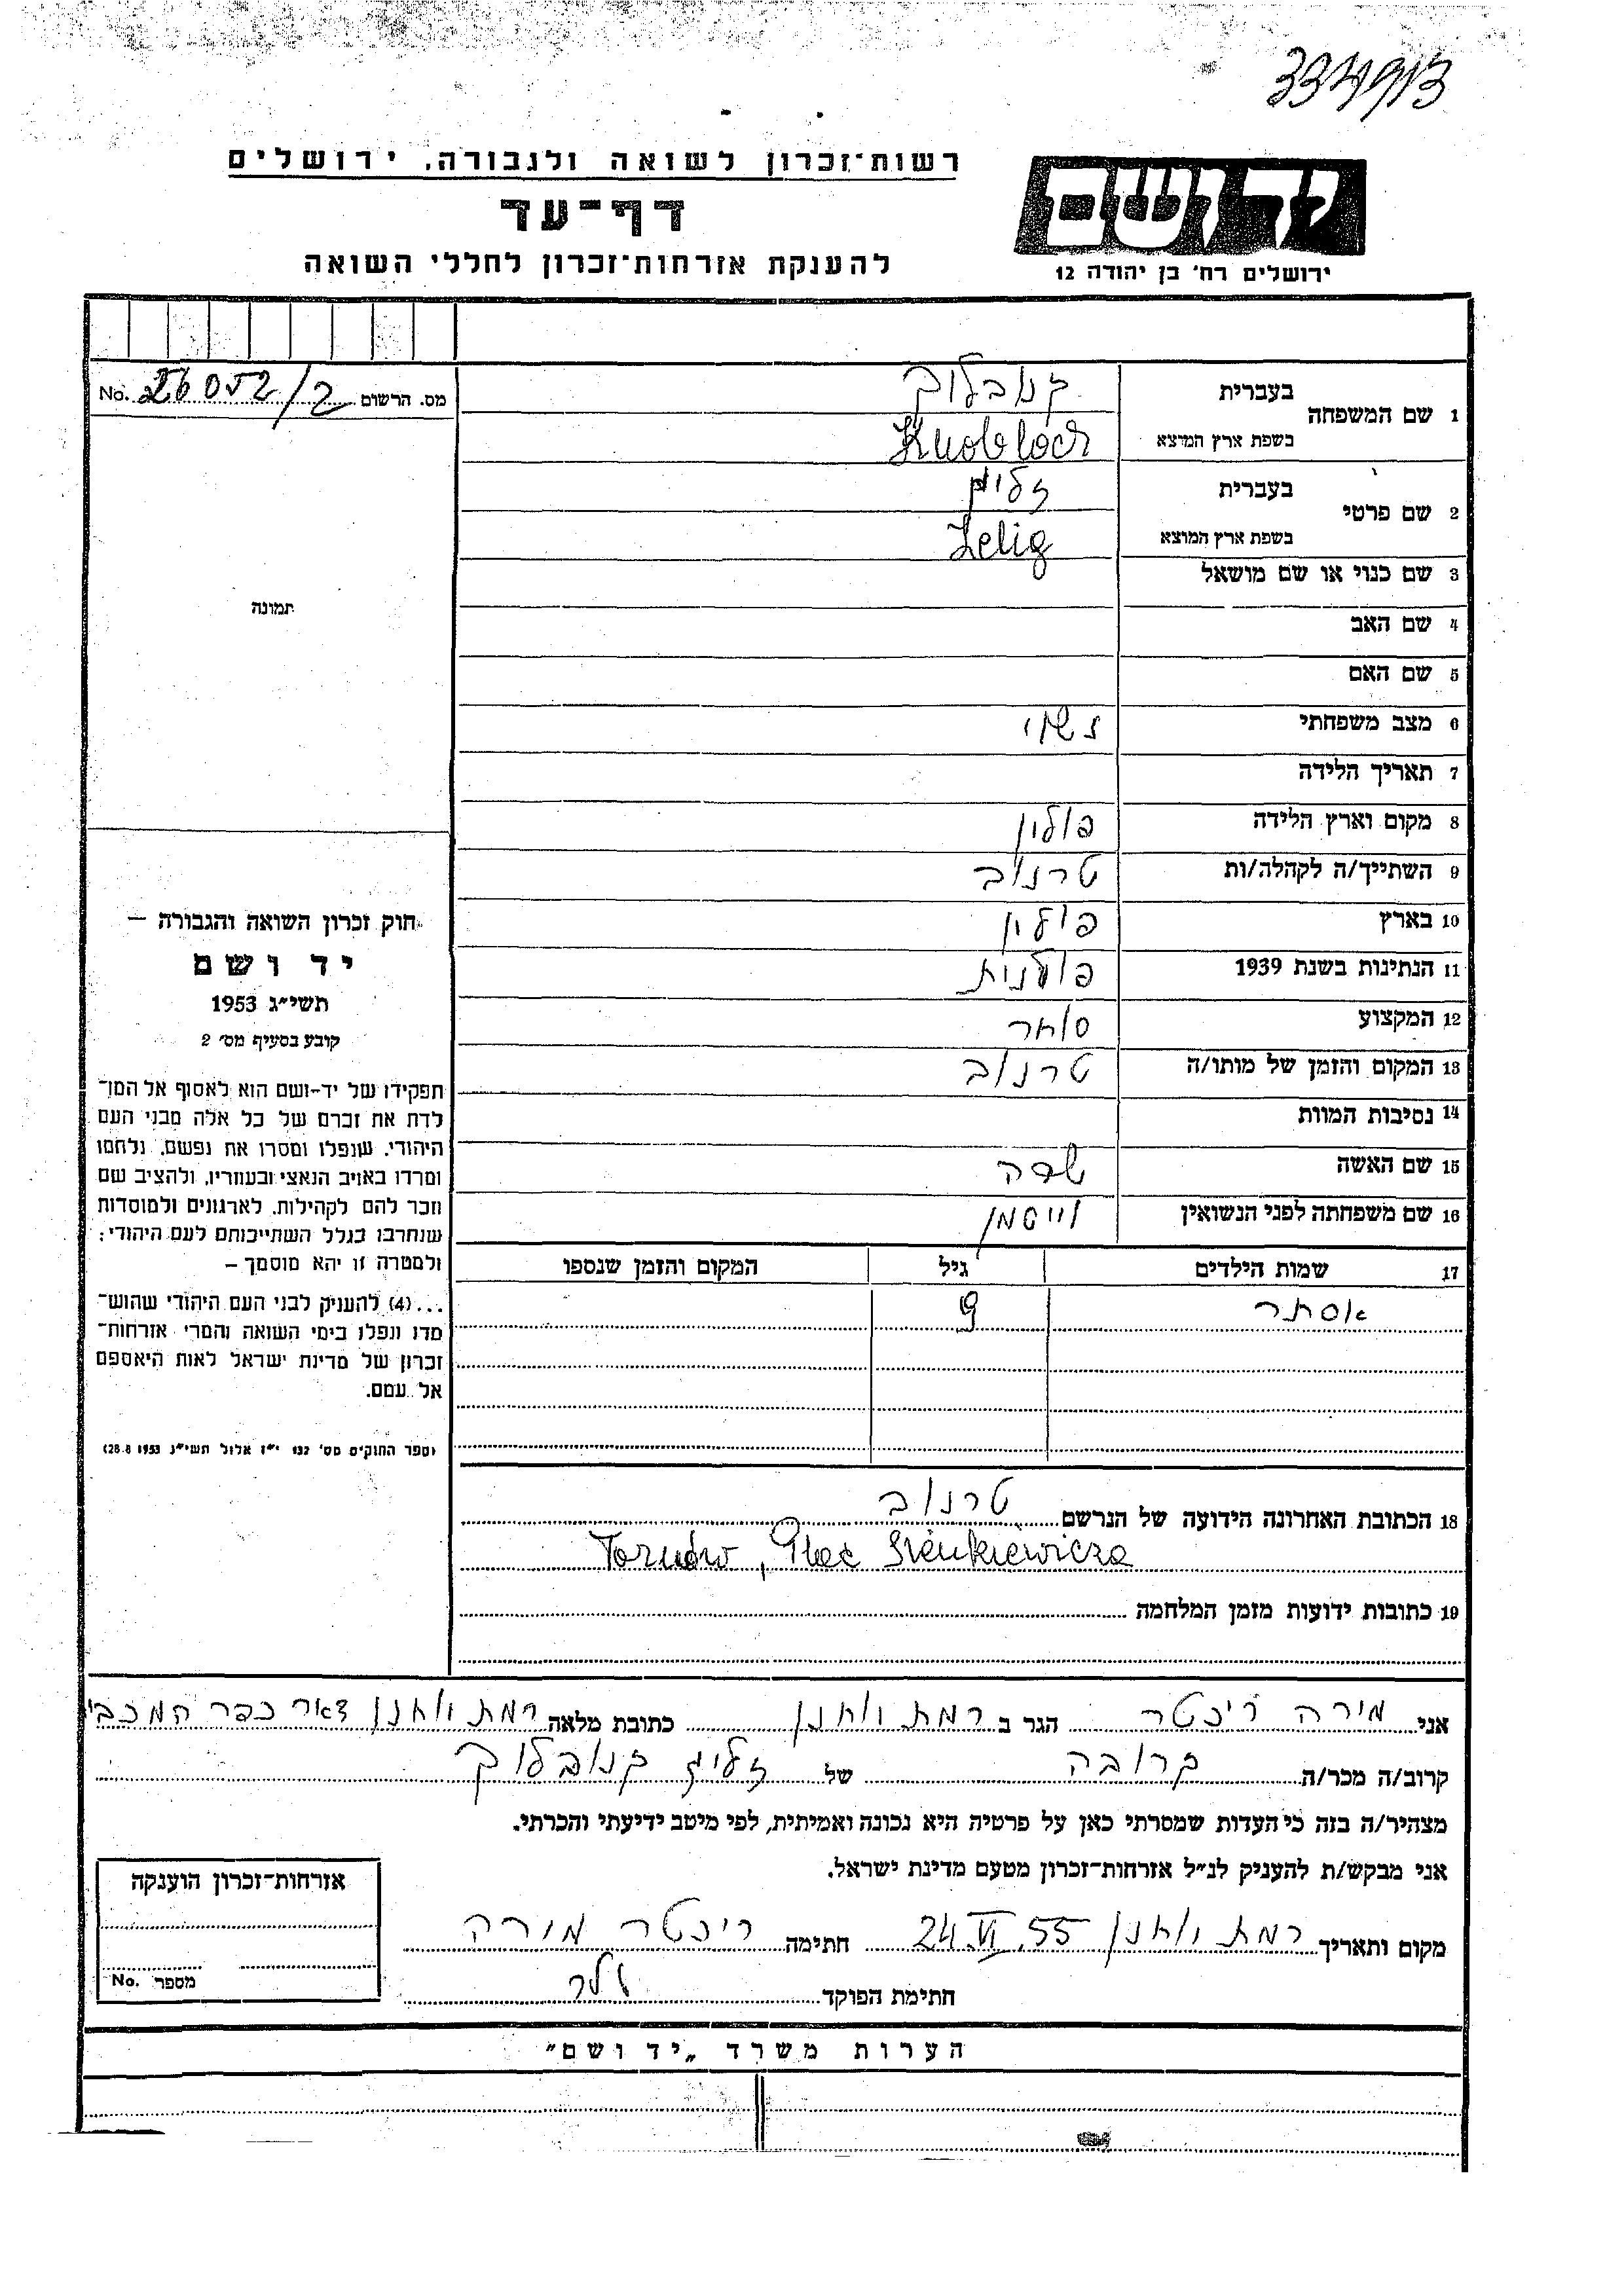 334913
רשות־זכרון לשואה ולגבורה, ירושלים
דף־עד
להענקת אזרחות־זכרון לחללי השואה
יד ושם
ירושלים רח' בן יהודה 12
מס. הרשום No. 26052/2
1 שם המשפחה בעברית קנובלוך
בשפת ארץ המוצא Knobloch
2 שם פרטי בעברית זליג
בשפת ארץ המוצא Zelig
3 שם כנוי או שם מושאל
4 שם האב
5 שם האם
6 מצב משפחתי נשוי
7 תאריך הלידה
8 מקום וארץ הלידה פולין
9 השתייך/ה לקהלה/ות טרנוב
10 בארץ פולין
11 הנתינות בשנת 1939 פולנית
12 המקצוע סוחר
13 המקום והזמן של מותו/ה טרנוב
14 נסיבות המוות
15 שם האשה שרה
16 שם משפחתה לפני הנשואין וייסמן
17 שמות הילדים גיל המקום והזמן שנספו
אסתר 9
18 הכתובת האחרונה הידועה של הנרשם טרנוב
Tarnów, Plac Sienkiewicza
19 כתובות ידועות מזמן המלחמה
תמונה
חוק זכרון השואה והגבורה —
יד ושם
תשי״ג 1953
קובע בסעיף מס׳ 2
תפקידו של יד-ושם הוא לאסוף אל המו־
לדת את זכרם של כל אלה מבני העם
היהודי, שנפלו ומסרו את נפשם, נלחמו
ומרדו באויב הנאצי ובעוזריו, ולהציב שם
וזכר להם לקהילות, לארגונים ולמוסדות
שנחרבו בגלל השתייכותם לעם היהודי;
ולמטרה זו יהא מוסמך –
...(4) להעניק לבני העם היהודי שהוש־
מדו ונפלו בימי השואה והמרי אזרחות־
זכרון של מדינת ישראל לאות היאספם
אל עמם.
(ספר החוקים מס׳ 132 י״ז אלול תשי״ג 28.8.1953)
אני מורה ריכטר הגר ב רמת יוחנן כתובת מלאה רמת יוחנן דאר כפר המכבי
קרוב/ה מכר/ה קרובה של זליג קנובלוך
מצהיר/ה בזה כי העדות שמסרתי כאן על פרטיה היא נכונה ואמיתית, לפי מיטב ידיעתי והכרתי.
אני מבקש/ת להעניק לנ״ל אזרחות־זכרון מטעם מדינת ישראל.
מקום ותאריך רמת יוחנן 24.VI.55 חתימה ריכטר מורה
חתימת הפוקד
אזרחות־זכרון הוענקה
מספר No.
הערות משרד „יד ושם״